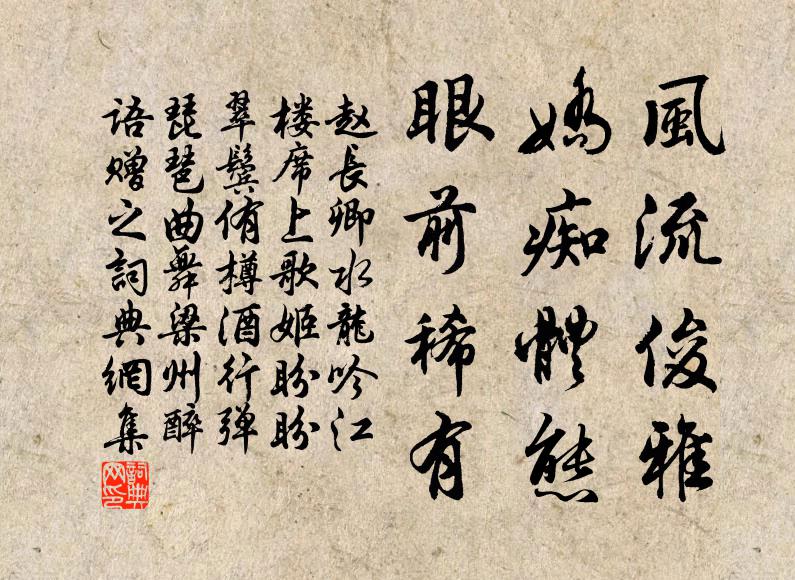 風流俊雅
嬌痴體態
眼前稀有
赵長卿水龍吟江
楼席上歌姬盼盼
翠鬟侑樽酒行弹
琵琶曲舞梁州醉
语赠之詞典網集
詞典网印